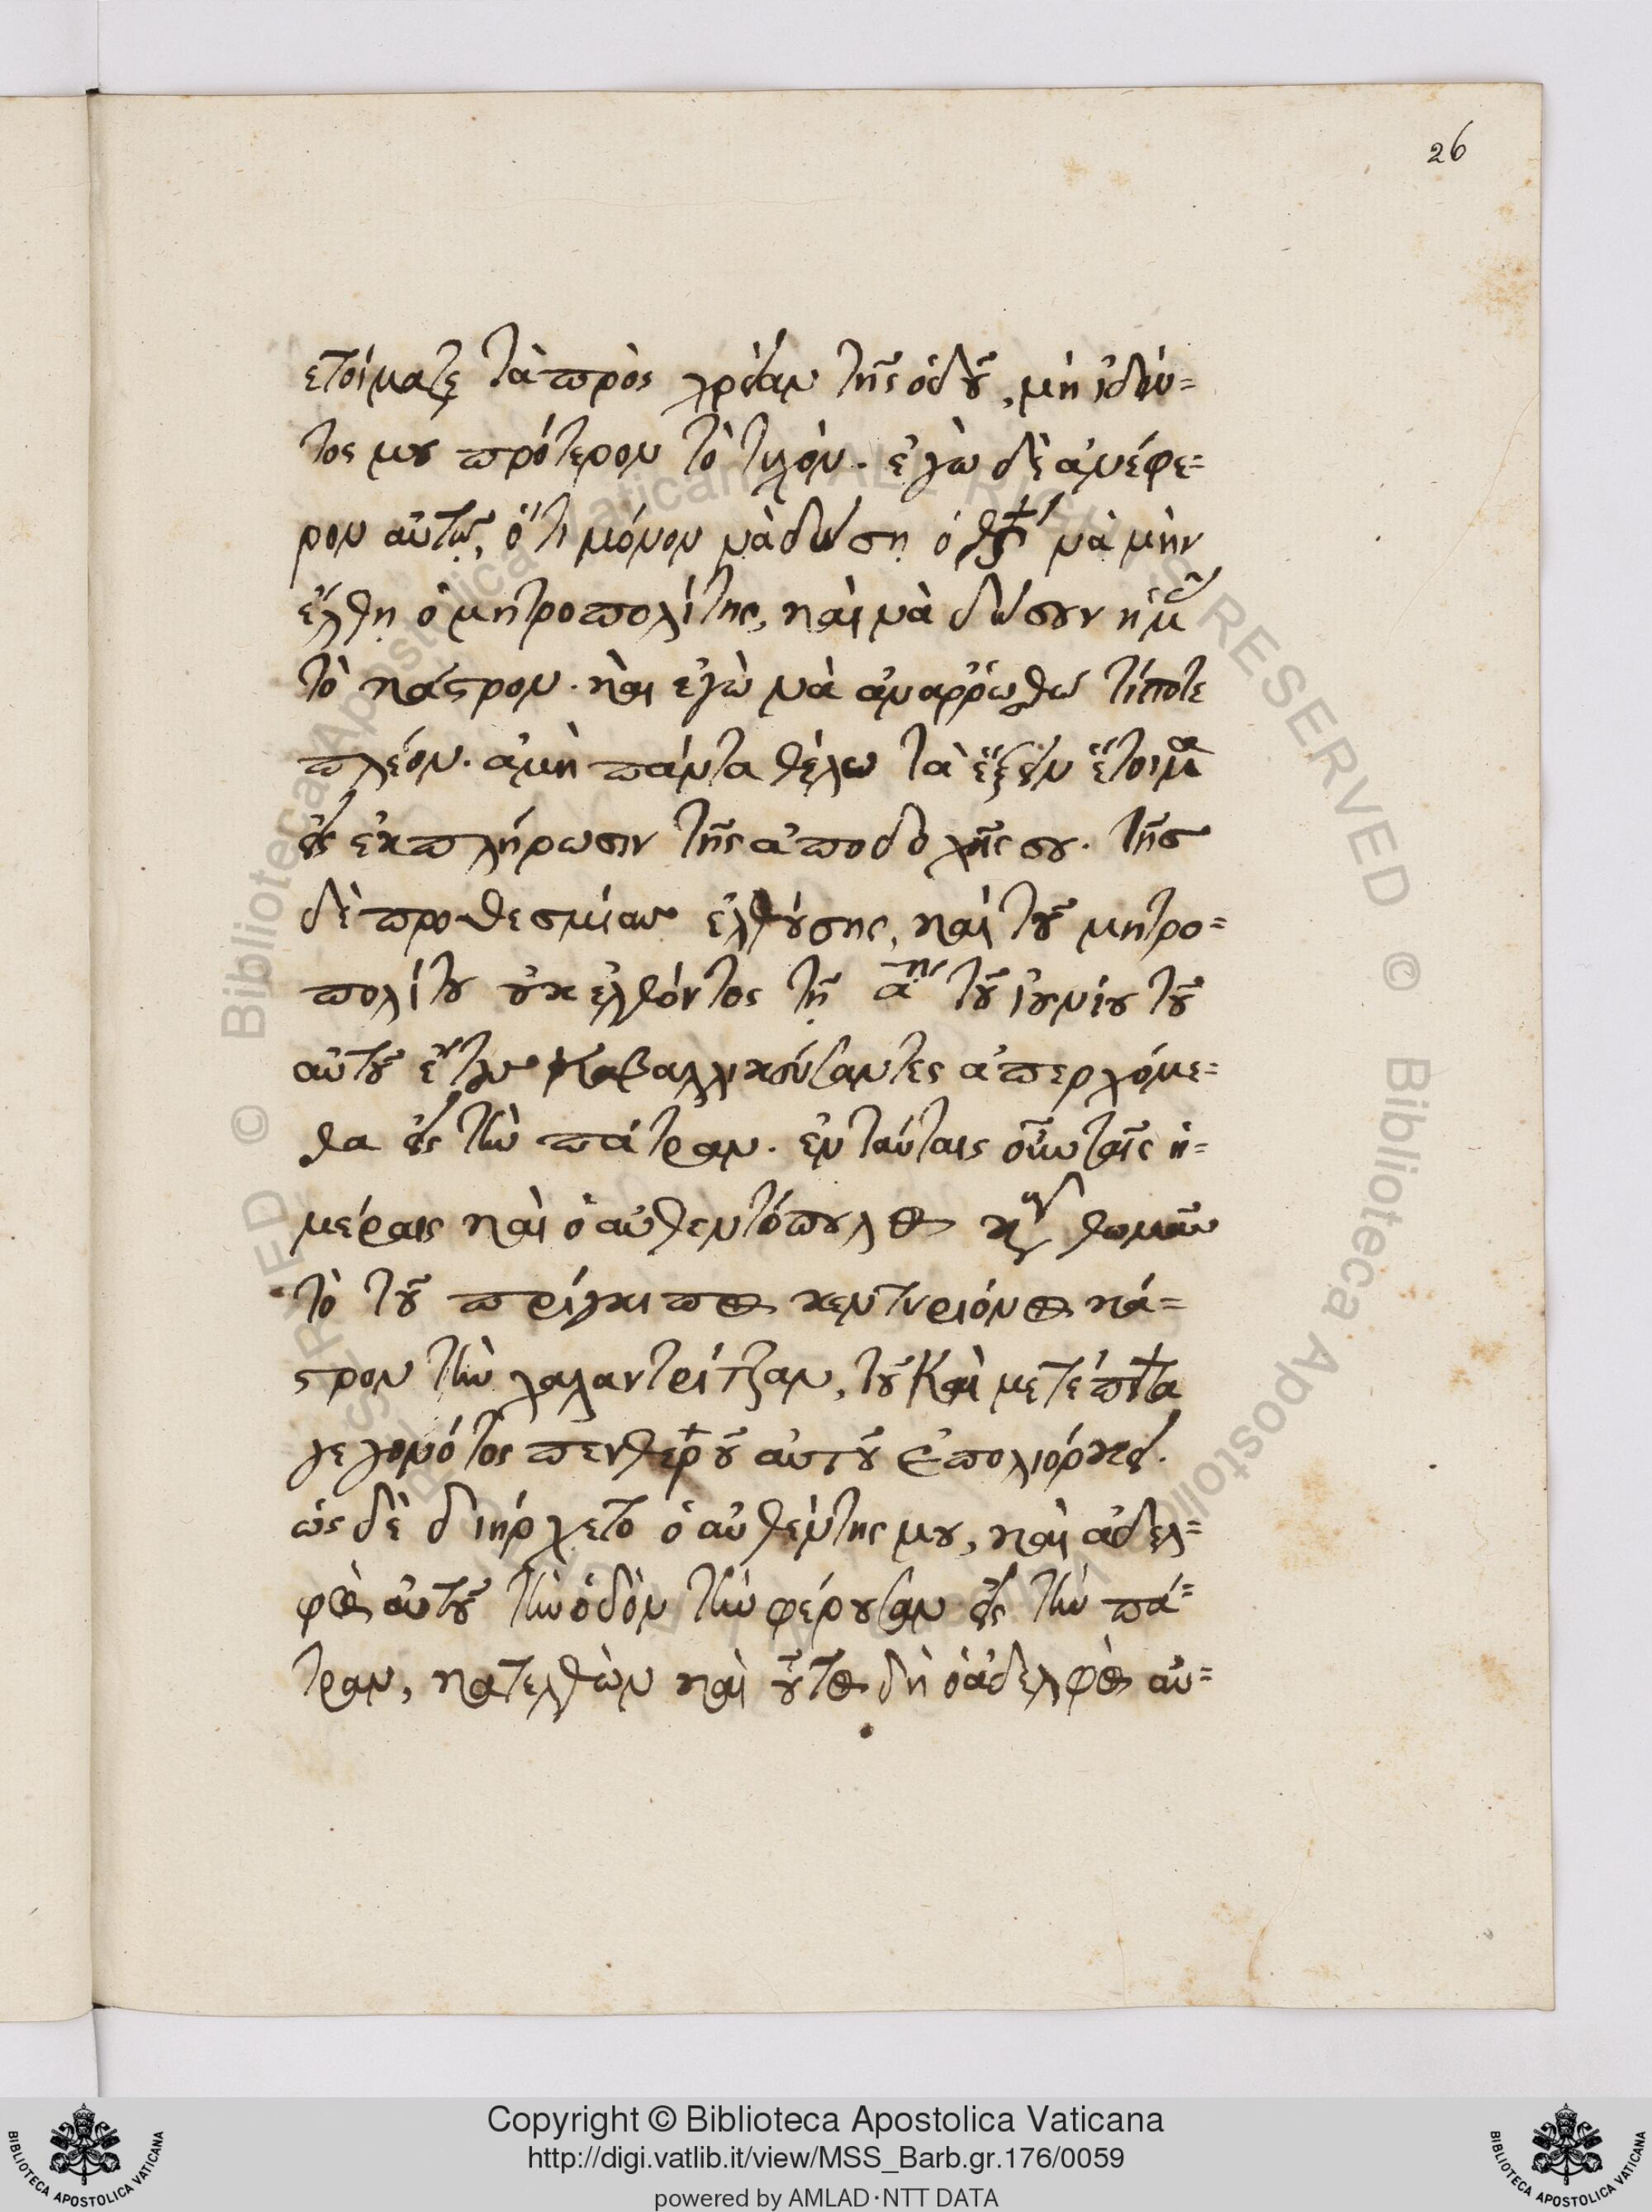 26
ετοίμαζε τὰ πρὸς χρείαν τῆς ὁδοῦ, μὴ ἰδόν=
τος μου πρότερον τὸ τυχὸν. ἐγὼ δὲ ἀνέφε=
ρον αὐτῶ, ὅτι μόνον νὰ δώση ὁ θς νὰ μὴν
ἔλθη ὁ μητροπολίτης, καὶ νὰ δώσουν ἡμ
τὸ κάστρον. καὶ ἐγὼ νὰ ἀναρρωθῶ τίποτε
πλέον. ἀμὴ πάντα θέλω τὰ ἔξειν ἕτοιμα
εἰς ἐκπλήρωσιν τῆς ἀποδοχῆς σου. τῆς
δὲ προθεσμίας ἐλθούσης, καὶ τοῦ μητρο=
πολίτου οὐκ ἐλθόντος τῆ α^η τοῦ ἰουνίου τοῦ
αὐτοῦ ἔτους καβαλλικεύσαντες ἀπερχόμε=
θα εἰς τὴν πάτραν. ἐν ταύταις οὖν ταῖς ἡ=
μέραις καὶ ὁ αὐθεντόπουλος κὺρ θωμᾶς
τὸ τοῦ πρίγκιπος κεντυριόνος κά=
στρον τὴν χαλαντρίτζαν, τοῦ καὶ μετέπειτα
γεγονότος πενθεροῦ αὐτοῦ ἐπολιόρκει.
ὡς δὲ διήρχετο ὁ αὐθέντης μου, καὶ ἀδελ=
φὸς αὐτοῦ τὴν ὁδὸν τὴν φέρουσαν εἰς τὴν πά=
τραν, κατελθὼν καὶ οὗτος δὴ ὁ ἀδελφὸς αὐ=
Copyright © Biblioteca Apostolica Vaticana
http://digi.vatlib.it/view/MSS_Barb.gr.176/0059
powered by AMLAD·NTT DATA
BIBLIOTECA APOSTOLICA VATICANA
BIBLIOTECA APOSTOLICA VATICANA